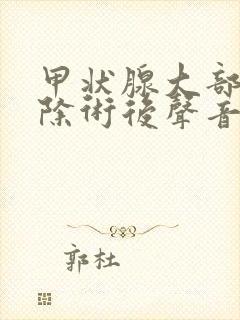 甲状腺大部
除術後聲音
郭杜